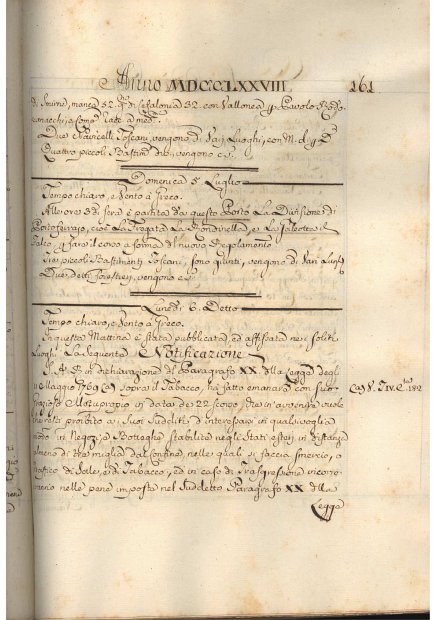 Anno MDCCLXXVIII 161
di Smirne, manca 32. gi di Cefalonia 32. con Vallonea p Pavolo
e a med.
Due Navicelli Toscani, vengono da Varj Luoghi, con M. d. p D.
Quattro piccoli Bastim di b., vengono c. s.
Domenica 5. Luglio
Tempo chiaro, e Vento à Greco.
All'ore 3 di sera è partita da questo Porto La Divisione di
Portoferrajo, cioè La Fregata La Rondinella, e La Galeotta Il
Falco, p fare il corso a forma del nuovo Regolamento
Tre piccoli Bastimenti Toscani, sono giunti, vengono da Vari Luoghi
Due, detti forestieri, vengono c. s.
Lunedì 6. Detto
Tempo chiaro, e Vento à Greco.
In questa Mattina è stata pubblicata, ed affissata nei soliti
Luoghi La seguente Notificazione
S. A. R. in dichiarazione del Paragrafo XX. della Legge degli
Maggio 1769 sopra il Tabacco, hà fatto emanare con suo Cas V. T. IV. C. 182
grazioso Motuproprio in data de 22 scorso, che in avvenire vuole
che resti proibito a Suoi Sudditi d'interessarsi in qualsivoglia
modo in Negozj, o Botteghe stabilite negli Stati esteri in distanza
meno di tre miglia dal Confine, nelle quali si faccia smercio, o
traffico di Sale, e di Tabacco, ed in caso di Trasgressione incorre-
ranno nelle pene imposte nel Suddetto Paragrafo XX della
Legge